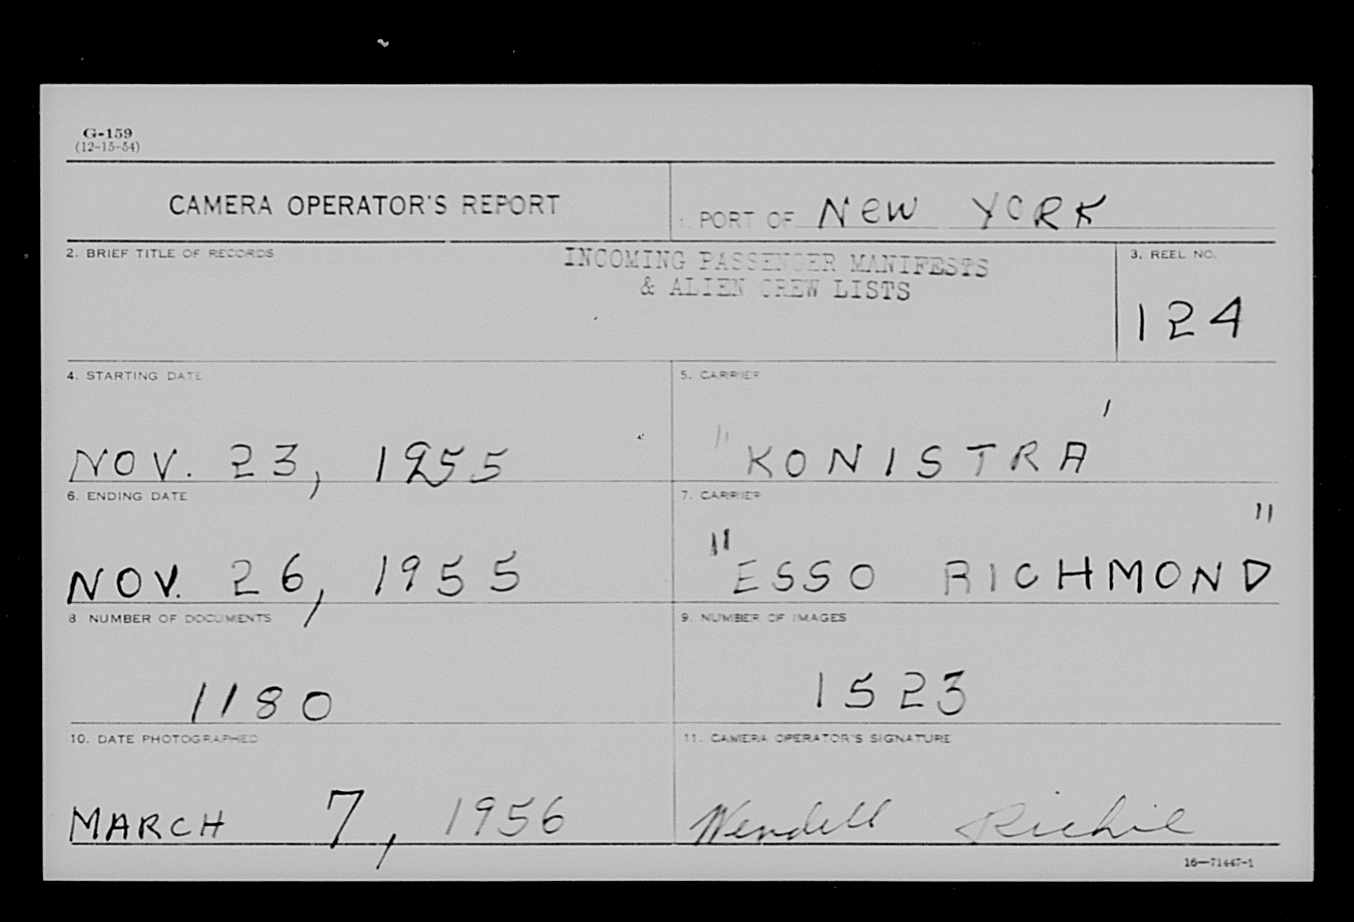 G-159
(12-15-54)
CAMERA OPERATOR'S REPORT
1. PORT OF New YORK
2. BRIEF TITLE OF RECORDS
INCOMING PASSENGER MANIFESTS
& ALIEN CREW LISTS
3. REEL NO.
124
4. STARTING DATE
NOV. 23, 1955
5. CARRIER
"KONISTRA'
6. ENDING DATE
NOV. 26, 1955
7. CARRIER
"ESSO RICHMOND"
8. NUMBER OF DOCUMENTS
1180
9. NUMBER OF IMAGES
1523
10. DATE PHOTOGRAPHED
MARCH 7, 1956
11. CAMERA OPERATOR'S SIGNATURE
Wendell Richie
16—71447-1